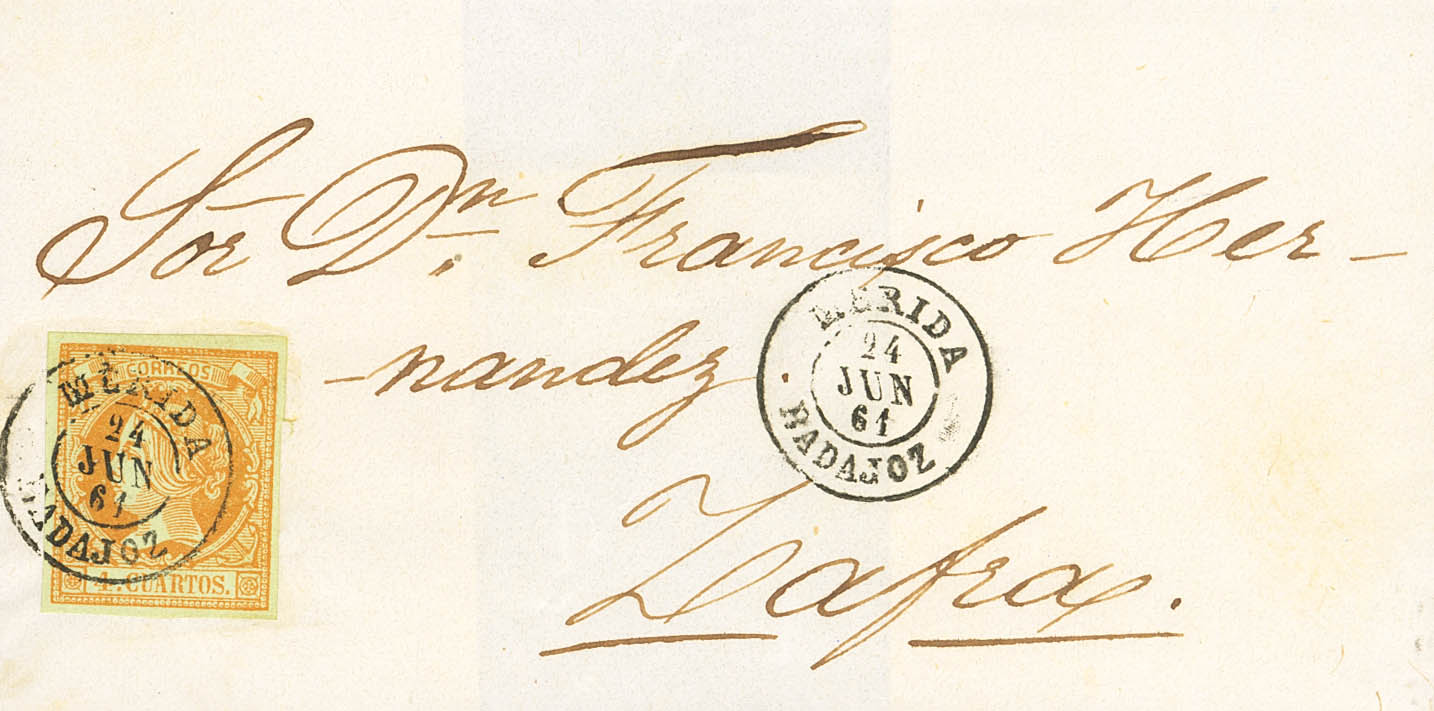 Sor Dn. Francisco Her-
-nandez.
Zafra.
MÉRIDA
24
JUN
61
BADAJOZ
CORREOS
4. CUARTOS.
MÉRIDA
24
JUN
61
BADAJOZ